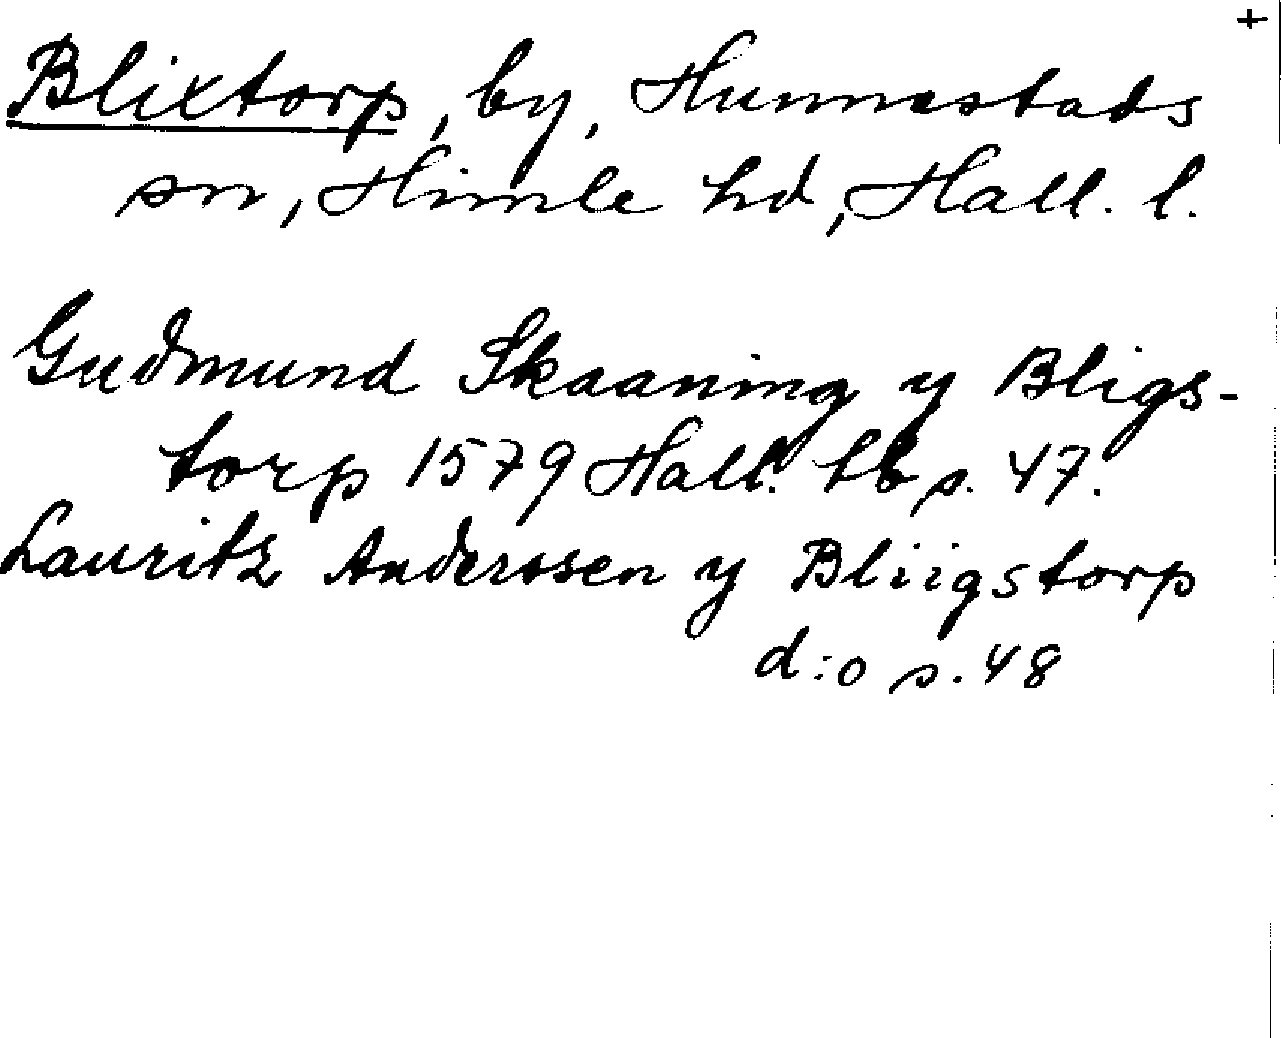 +
Blixtorp, by, Hunnestads
sn, Himle hd, Hall. l.
Gudmund Skaaning y Bligs-
torp 1579 Hall. lb s. 47.
Lauritz Anderssen y Bliigstorp
d:o s. 48